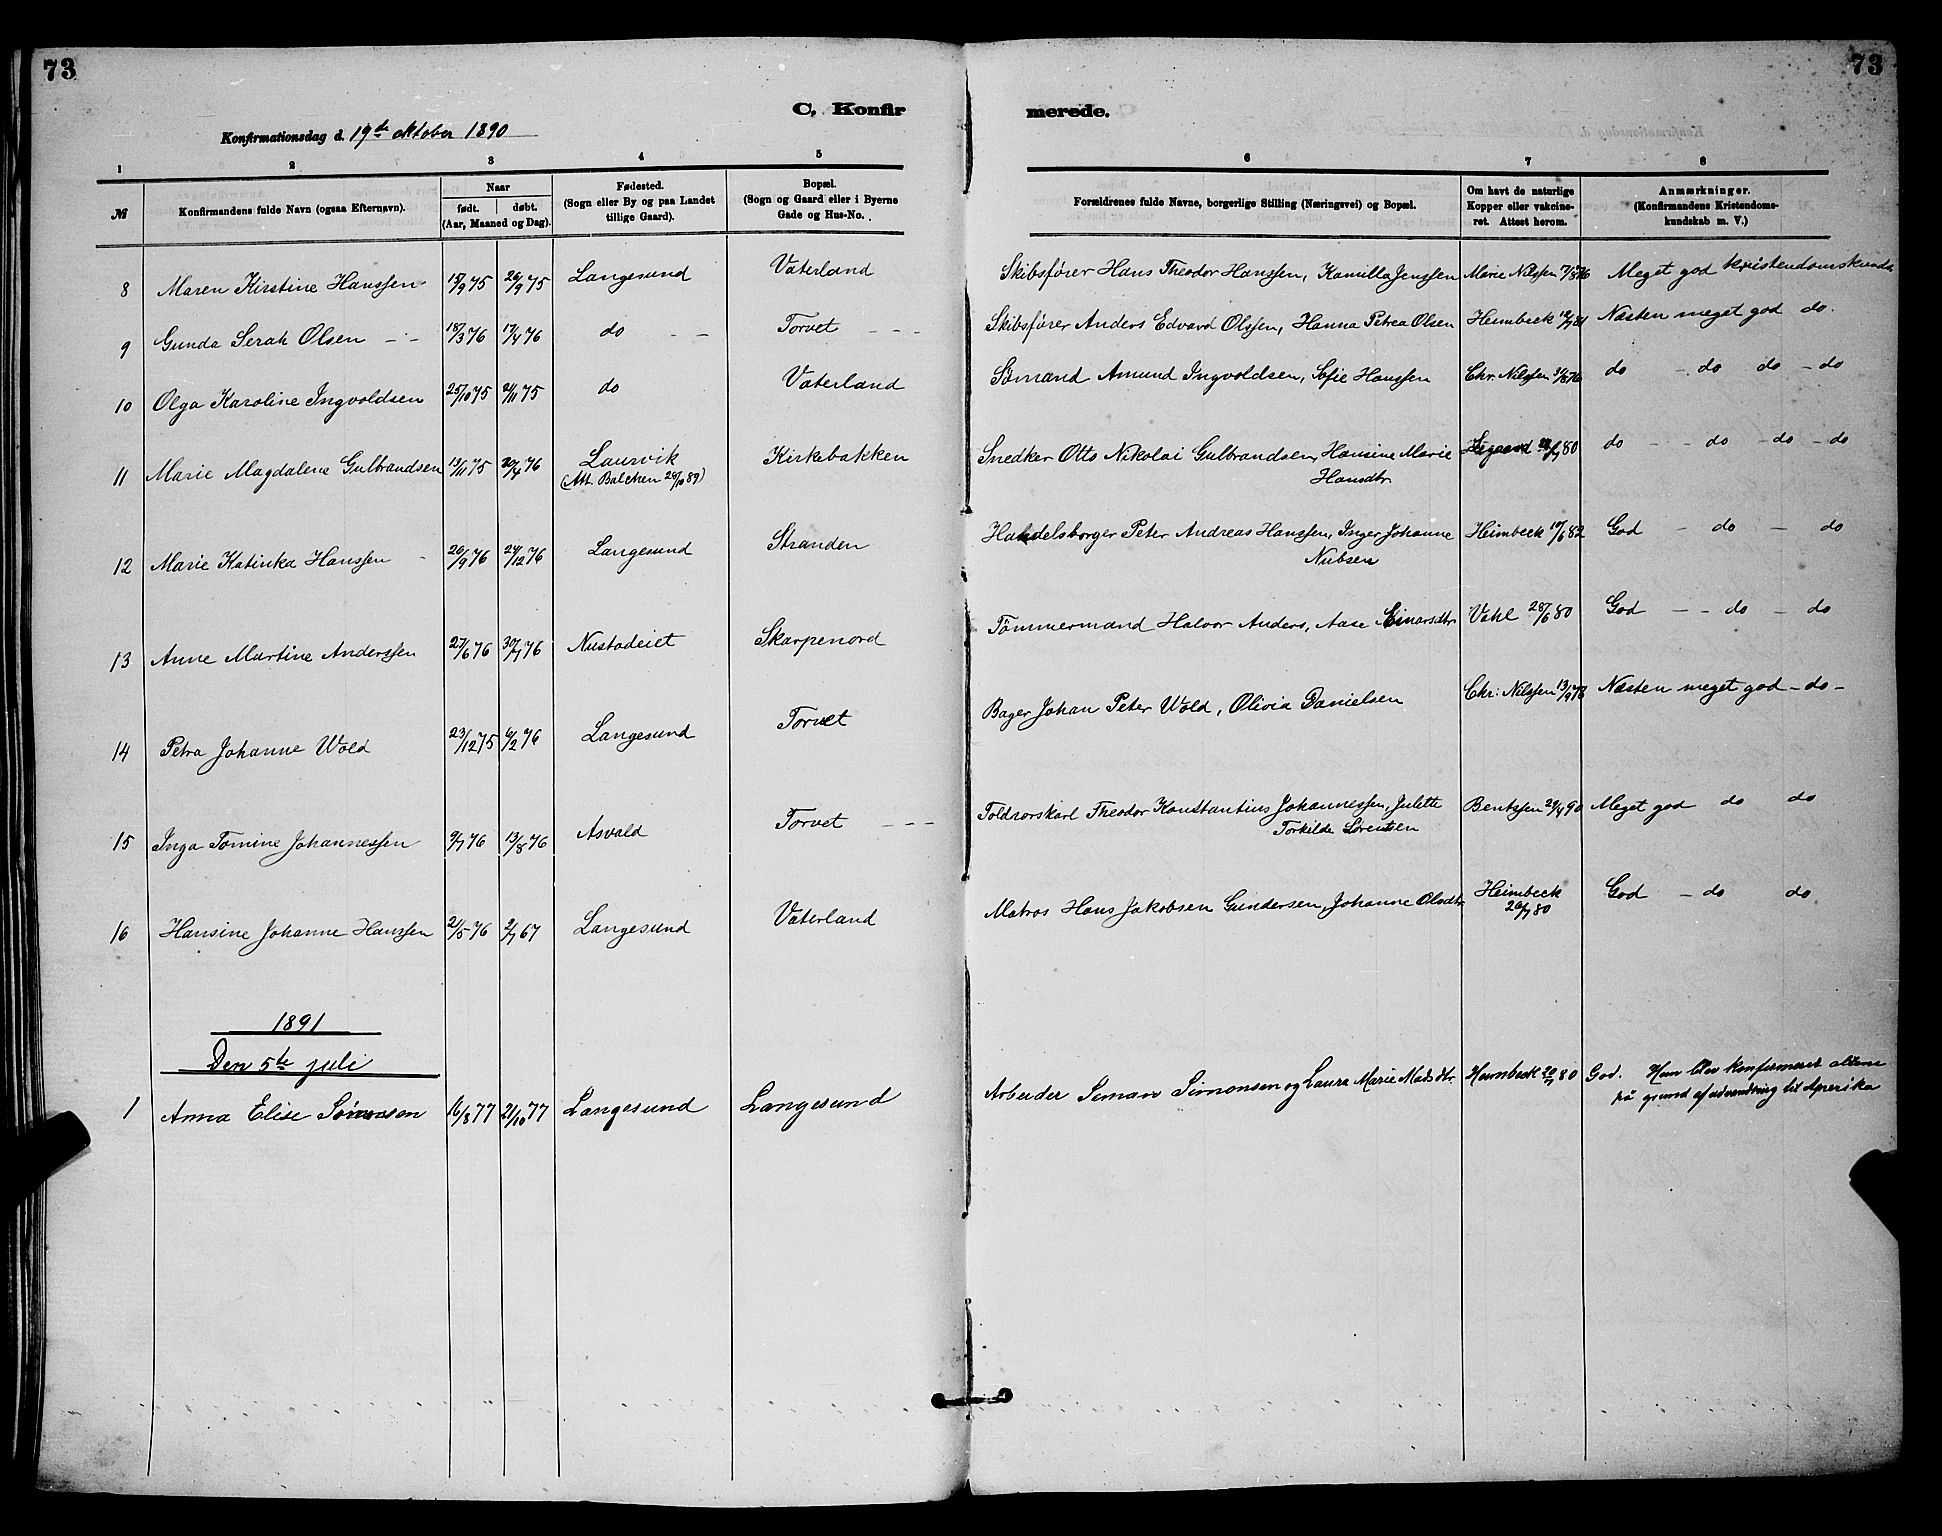 73
73
C. Konfir
merede.
Konfirmationsdag d. 19de oktober 1890
1 2 3 4 5 6 7 8
№ Konfirmandens fulde Navn (ogsaa Efternavn). Naar født. døbt. (Aar, Maaned og Dag). Fødested. (Sogn eller By og paa Landet tillige Gaard). Bopæl. (Sogn og Gaard eller i Byerne Gade og Hus-No. Forældrenes fulde Navne, borgerlige Stilling (Næringsvei) og Bopæl. Om havt de naturlige Kopper eller vakcineret. Attest herom. Anmærkninger. (Konfirmandens Kristendomskundskab m. V.)
8 Maren Kirstine Hanssen 15/9 75 26/9 75 Langesund Vaterland Skibsfører Hans Theodor Hanssen, Kamilla Jenssen Marie Nilssen 7/8 76 Meget god kristendomskundsk
9 Gunda Serah Olsen - - 18/3 76 17/4 76 do - - Torvet - - - Skibsfører Anders Edvard Olssen, Hanna Petrea Olsen Heimbeck 81 Næsten meget god do.
10 Olga Karoline Ingvoldsen 25/10 75 21/11 75 do Vaterland Sømand Amund Ingvoldsen, Sofie Hanssen Chr. Nilssen 76 do - do do - do
11 Marie Magdalene Gulbrandsen 19/11 75 30/4 76 Laurvik Kirkebakken Snedker Otto Nikolai Gulbrandsen, Hansine Marie 80 do - - do - do - do
(Att. Balchen 20/10 89) Hansdtr
12 Marie Katinka Hanssen - 20/9 76 24/12 76 Langesund Stranden Handelsborger Peter Andreas Hanssen, Inger Johanne Heimbeck 19/6 82 God - do - do
Nubsen
13 Anne Martine Anderssen 27/6 76 30/7 76 Nustadeiet Skarpenord Tømmermand Halvor Anders, Aase Einarsdtr Vahl 28/6 80 God - - do - do
14 Petra Johanne Wold 23/12 75 6/2 76 Langesund Torvet Bager Johan Peter Wold, Olivia Danielsen Chr: Nilssen 13/9 78 Næsten meget god - do -
15 Inga Tomine Johannessen 9/7 76 13/8 76 Asvald Torvet - - - Toldrorskarl Theodor Konstantius Johannessen, Julette Bentssen 29/4 90 Meget god do do
Torkilde Sørensen
16 Hansine Johanne Hanssen 21/5 76 2/7 67 Langesund Vaterland Matros Hans Jakobsen Gundersen, Johanne Olsdtr Heimbeck God - do do
26/7 80
1891
Den 5te juli
1 Anna Elise Simonsen 16/8 77 21/10 77 Langesund Langesund Arbeider Simon Simonsen og Laura Marie Madsdtr. Heimbeck 20/7 80 God. Hun blev konfirmeret alene
på grund af udvandring til Amerika